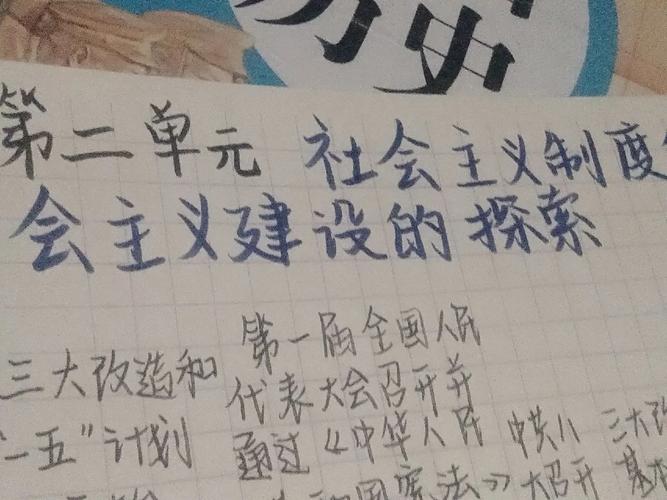 历史
第二单元 社会主义制度
会主义建设的探索
第一届全国人民
三大改造和 代表大会召开并
"一五"计划 通过《中华人民 中共八 三大改
和国宪法》 大召开 基本